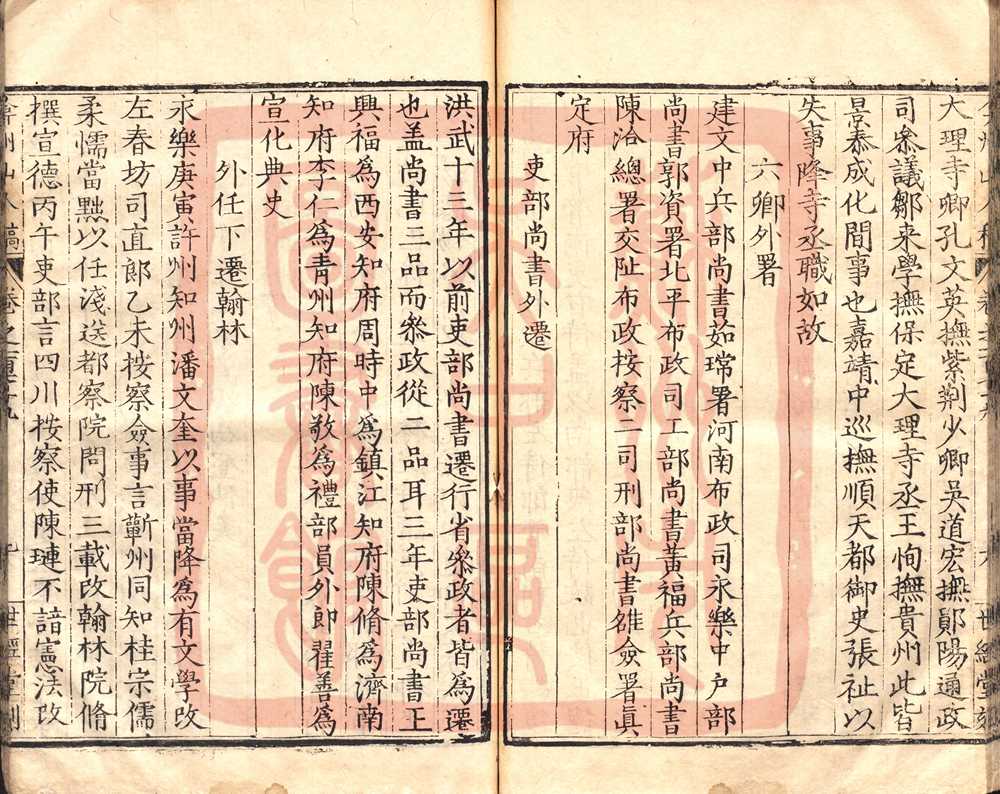 大理寺卿孔文英撫紫荆少卿吳道宏撫鄖陽通政
司叅議鄒来學撫保定大理寺丞王恂撫貴州此皆
景泰成化間事也嘉靖中巡撫順天都御史張祉以
失事降寺丞職如故
六卿外署
建文中兵部尚書茹瑺署河南布政司永樂中戶部
尚書郭資署北平布政司工部尚書黃福兵部尚書
陳洽總署交阯布政按察二司刑部尚書雒僉署眞
定府
吏部尚書外遷
洪武十三年以前吏部尚書遷行省叅政者皆為遷
也盖尚書三品而叅政從二品耳二年吏部尚書王
興福為西安知府周時中為鎮江知府陳脩為濟南
知府李仁為青州知府陳敬為禮部員外郎翟善為
宣化典史
外任下遷翰林
永樂庚寅許州知州潘文奎以事當降為有文學改
左春坊司直郎乙未按察僉事言蘄州同知桂宗儒
柔懦當黜以任淺送都察院問刑三載改翰林院脩
撰宣德丙午吏部言四川按察使陳璉不諳憲法改
弇州山人稿 卷之
世經堂刻